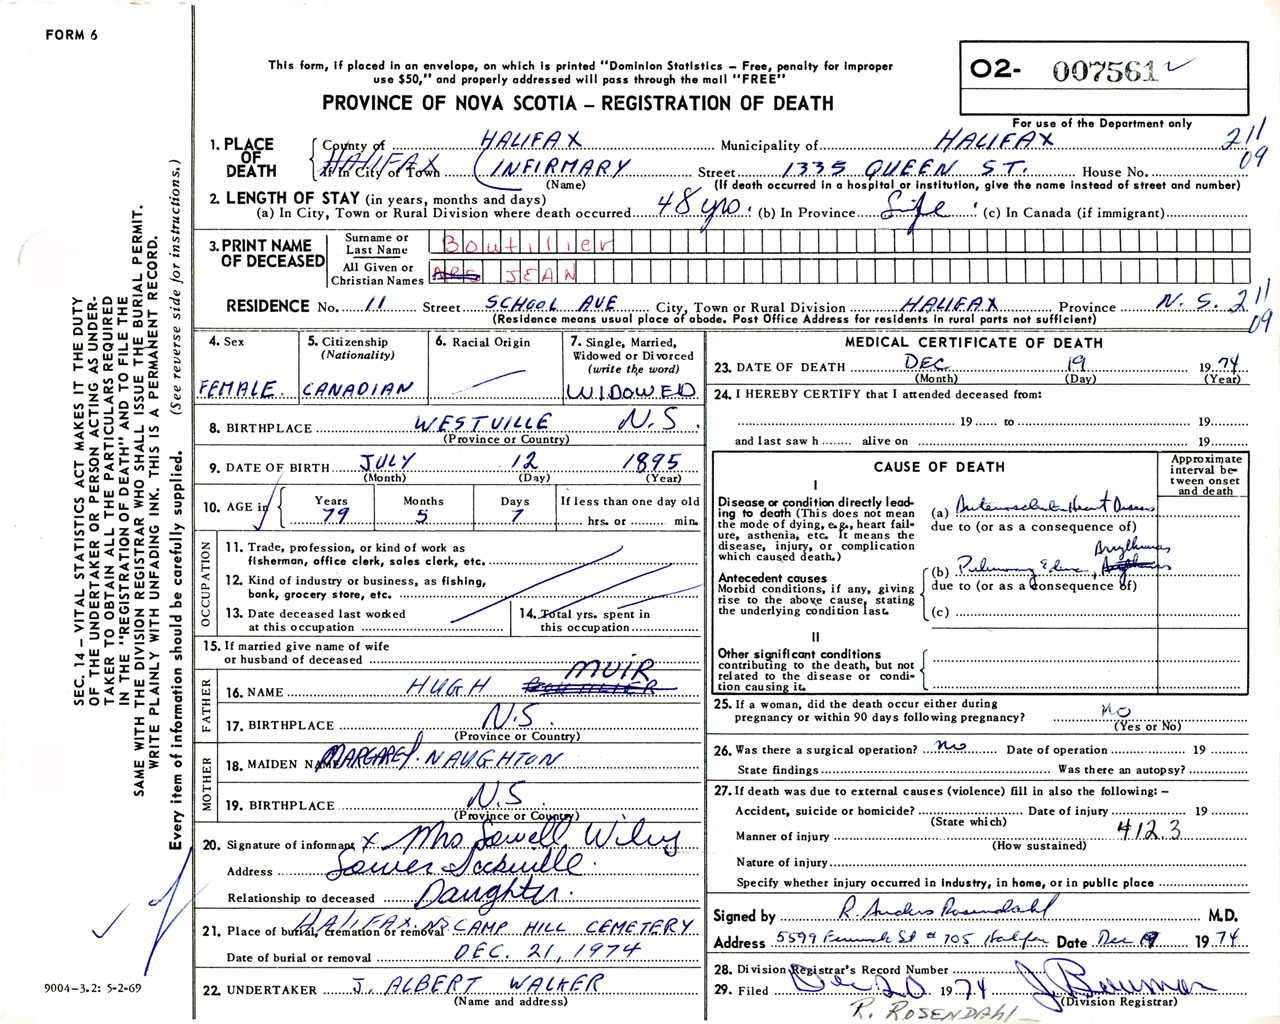 FORM 6
This form, if placed in an envelope, on which is printed "Dominion Statistics – Free, penalty for improper
use $50," and properly addressed will pass through the mail "FREE"
PROVINCE OF NOVA SCOTIA – REGISTRATION OF DEATH
O2- 007561
For use of the Department only
1. PLACE OF DEATH
County of HALIFAX Municipality of HALIFAX 211 09
HALIFAX If in City or Town (INFIRMARY Street 1335 QUEEN ST. House No.
(Name) (If death occurred in a hospital or institution, give the name instead of street and number)
2. LENGTH OF STAY (in years, months and days)
(a) In City, Town or Rural Division where death occurred 48 yrs. (b) In Province Life. (c) In Canada (if immigrant)
3. PRINT NAME OF DECEASED
Surname or Last Name Boutillier
All Given or Christian Names JEAN
RESIDENCE No. 11 Street SCHOOL AVE City, Town or Rural Division HALIFAX Province N.S. 211 09
(Residence means usual place of abode. Post Office Address for residents in rural parts not sufficient)
4. Sex FEMALE.
5. Citizenship (Nationality) CANADIAN
6. Racial Origin
7. Single, Married, Widowed or Divorced (write the word) WIDOWED
8. BIRTHPLACE WESTVILLE N.S.
(Province or Country)
9. DATE OF BIRTH JULY 12 1895
(Month) (Day) (Year)
10. AGE in Years 79 Months 5 Days 7 If less than one day old hrs. or min.
OCCUPATION
11. Trade, profession, or kind of work as
fisherman, office clerk, sales clerk, etc.
12. Kind of industry or business, as fishing,
bank, grocery store, etc.
13. Date deceased last worked
at this occupation
14. Total yrs. spent in
this occupation
15. If married give name of wife
or husband of deceased
FATHER
16. NAME HUGH MUIR
17. BIRTHPLACE N.S.
(Province or Country)
MOTHER
18. MAIDEN NAME MARGARET NAUGHTON
19. BIRTHPLACE N.S.
(Province or Country)
20. Signature of informant x Mrs Lowell Wiley
Address Lower Sackville.
Relationship to deceased Daughter.
21. Place of burial, cremation or removal HALIFAX NS CAMP HILL CEMETERY
Date of burial or removal DEC. 21, 1974
22. UNDERTAKER J. ALBERT WALKER
(Name and address)
MEDICAL CERTIFICATE OF DEATH
23. DATE OF DEATH DEC 19 1974
(Month) (Day) (Year)
24. I HEREBY CERTIFY that I attended deceased from:
19 to 19
and last saw h alive on 19
CAUSE OF DEATH
Approximate interval between onset and death
I
Disease or condition directly leading to death (This does not mean the mode of dying, e.g., heart failure, asthenia, etc. It means the disease, injury, or complication which caused death.)
(a) Arteriosclerotic Heart Disease
due to (or as a consequence of)
Arrythmias
(b) Pulmonary Edema,
due to (or as a consequence of)
(c)
Antecedent causes
Morbid conditions, if any, giving rise to the above cause, stating the underlying condition last.
II
Other significant conditions
contributing to the death, but not related to the disease or condition causing it.
25. If a woman, did the death occur either during
pregnancy or within 90 days following pregnancy? no
(Yes or No)
26. Was there a surgical operation? no Date of operation 19
State findings Was there an autopsy?
27. If death was due to external causes (violence) fill in also the following: –
Accident, suicide or homicide? Date of injury 19
(State which)
Manner of injury 412.3
(How sustained)
Nature of injury
Specify whether injury occurred in industry, in home, or in public place
Signed by R. Anders Rosendahl M.D.
Address 5599 Fenwick St # 705 Halifax Date Dec 19 1974
28. Division Registrar's Record Number
29. Filed Dec 20 1974
(Division Registrar)
R. ROSENDAHL
SEC. 14 – VITAL STATISTICS ACT MAKES IT THE DUTY
OF THE UNDERTAKER OR PERSON ACTING AS UNDER-
TAKER TO OBTAIN ALL THE PARTICULARS REQUIRED
IN THE "REGISTRATION OF DEATH" AND TO FILE THE
SAME WITH THE DIVISION REGISTRAR WHO SHALL ISSUE THE BURIAL PERMIT.
WRITE PLAINLY WITH UNFADING INK. THIS IS A PERMANENT RECORD.
Every item of information should be carefully supplied. (See reverse side for instructions.)
9004–3.2: 5-2-69